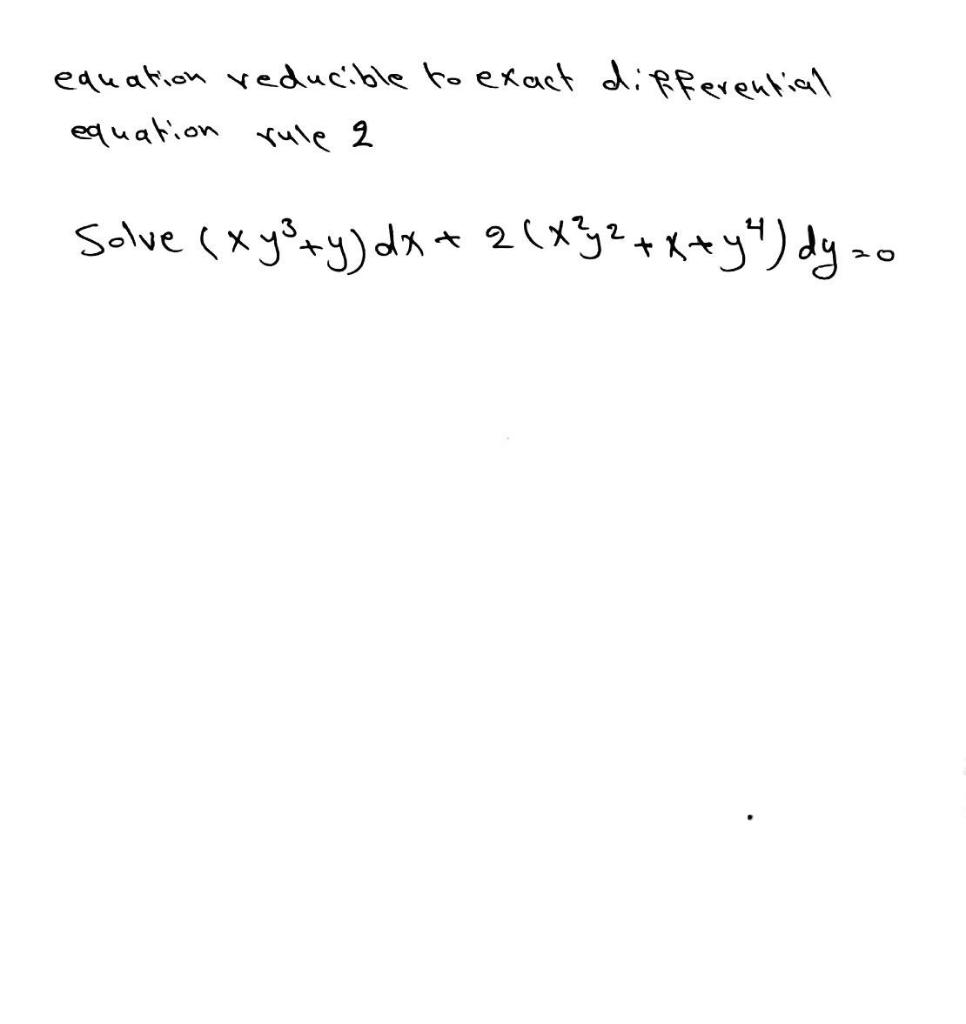 equation reducible to exact differential
equation rule 2
Solve (xy³+y)dx + 2(x²y²+x+y⁴)dy=0